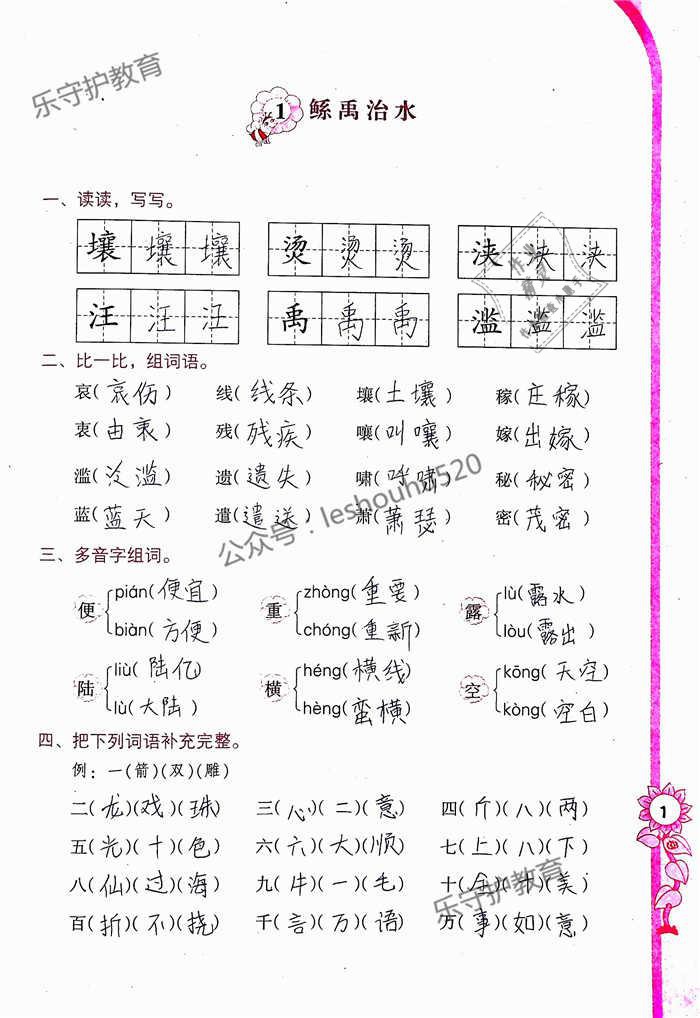 乐守护教育
1 鲧禹治水
一、读读，写写。
壤 壤 壤 烫 烫 烫 浃 浃 浃
汪 汪 汪 禹 禹 禹 滥 滥 滥
二、比一比，组词语。
哀(哀伤) 线(线条) 壤(土壤) 稼(庄稼)
衷(由衷) 残(残疾) 嚷(叫嚷) 嫁(出嫁)
滥(泛滥) 遗(遗失) 啸(呼啸) 秘(秘密)
蓝(蓝天) 遣(遣送) 萧(萧瑟) 密(茂密)
公众号：leshouhu520
三、多音字组词。
便 pián(便宜) 重 zhòng(重要) 露 lù(露水)
biàn(方便) chóng(重新) lòu(露出)
陆 liù(陆亿) 横 héng(横线) 空 kōng(天空)
lù(大陆) hèng(蛮横) kòng(空白)
四、把下列词语补充完整。
例：一(箭)(双)(雕)
二(龙)(戏)(珠) 三(心)(二)(意) 四(斤)(八)(两)
五(光)(十)(色) 六(六)(大)(顺) 七(上)(八)(下)
八(仙)(过)(海) 九(牛)(一)(毛) 十(全)(十)(美)
百(折)(不)(挠) 千(言)(万)(语) 万(事)(如)(意)
乐守护教育
1